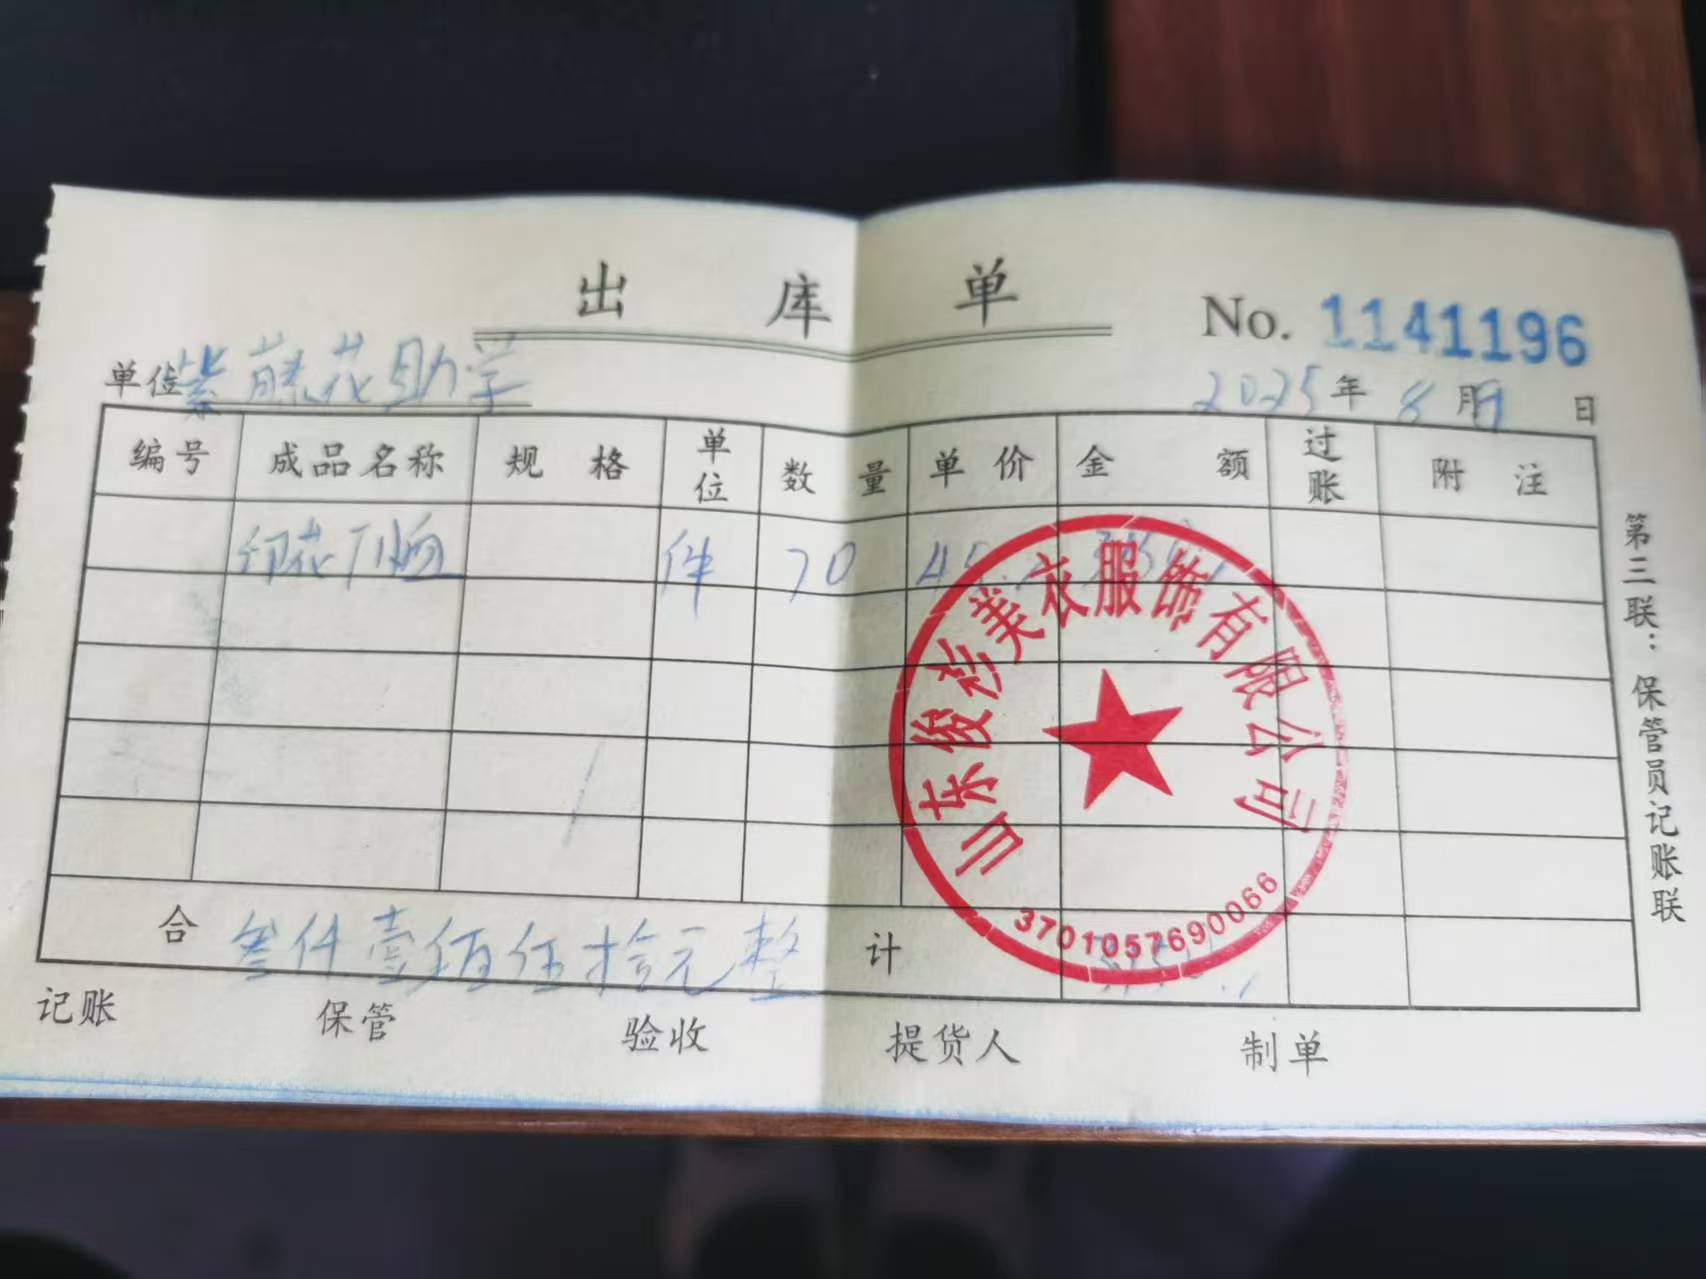 出库单
No. 1141196
单位 紫藤花助学
2025年8月9日
编号 成品名称 规格 单位 数量 单价 金额 过账 附注
印花T恤 件 70 45
合 叁仟壹佰伍拾元整 计 3150
记账 保管 验收 提货人 制单
第三联：保管员记账联
山东俊衫美衣服饰有限公司
3701057690066